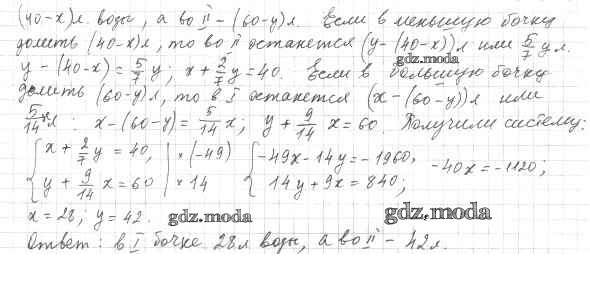 (40-x)л. воды, а во II - (60-y)л. Если в меньшую бочку
долить (40-x)л, то во II останется (y-(40-x))л или 5/7 y л.
y-(40-x)=5/7 y; x+2/7 y=40. Если в большую бочку
gdz.moda
долить (60-y)л, то в I останется (x-(60-y))л или
5/14 x л: x-(60-y)=5/14 x; y+9/14 x=60 Получили систему:
{x+2/7 y=40, |×(-49) {-49x-14y=-1960, -40x=-1120;
{y+9/14 x=60 |×14 {14y+9x=840;
x=28; y=42.
gdz.moda gdz.moda
Ответ: в I бочке 28л воды, а во II - 42л.